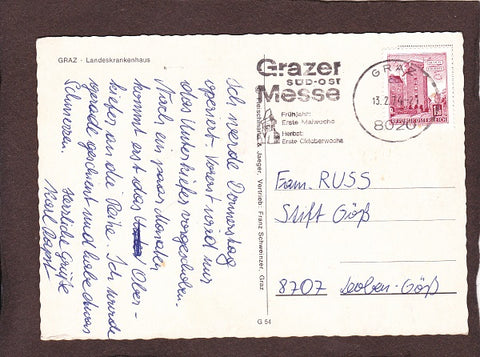 GRAZ - Landeskrankenhaus
Ich werde Donnerstag
operiert. Vorerst wird nur
das Unterkiefer vorgenommen.
Nach ein paar Monaten
kommt erst das Ober-
kiefer an die Reihe. Ich wurde
gerade geschient und habe etwas
Schmerzen.
Herzliche Grüße
Karl
Grazer
SÜD-OST
Messe
Frühjahr:
Erste Maiwoche
Herbst:
Erste Oktoberwoche
GRAZ
13.2.74
8020
REPUBLIK ÖSTERREICH
Fam. RUSS
Stift Göß
8707 Leoben-Göß
& Jaeger, Vertrieb: Franz Schweinzer, Graz
G 54